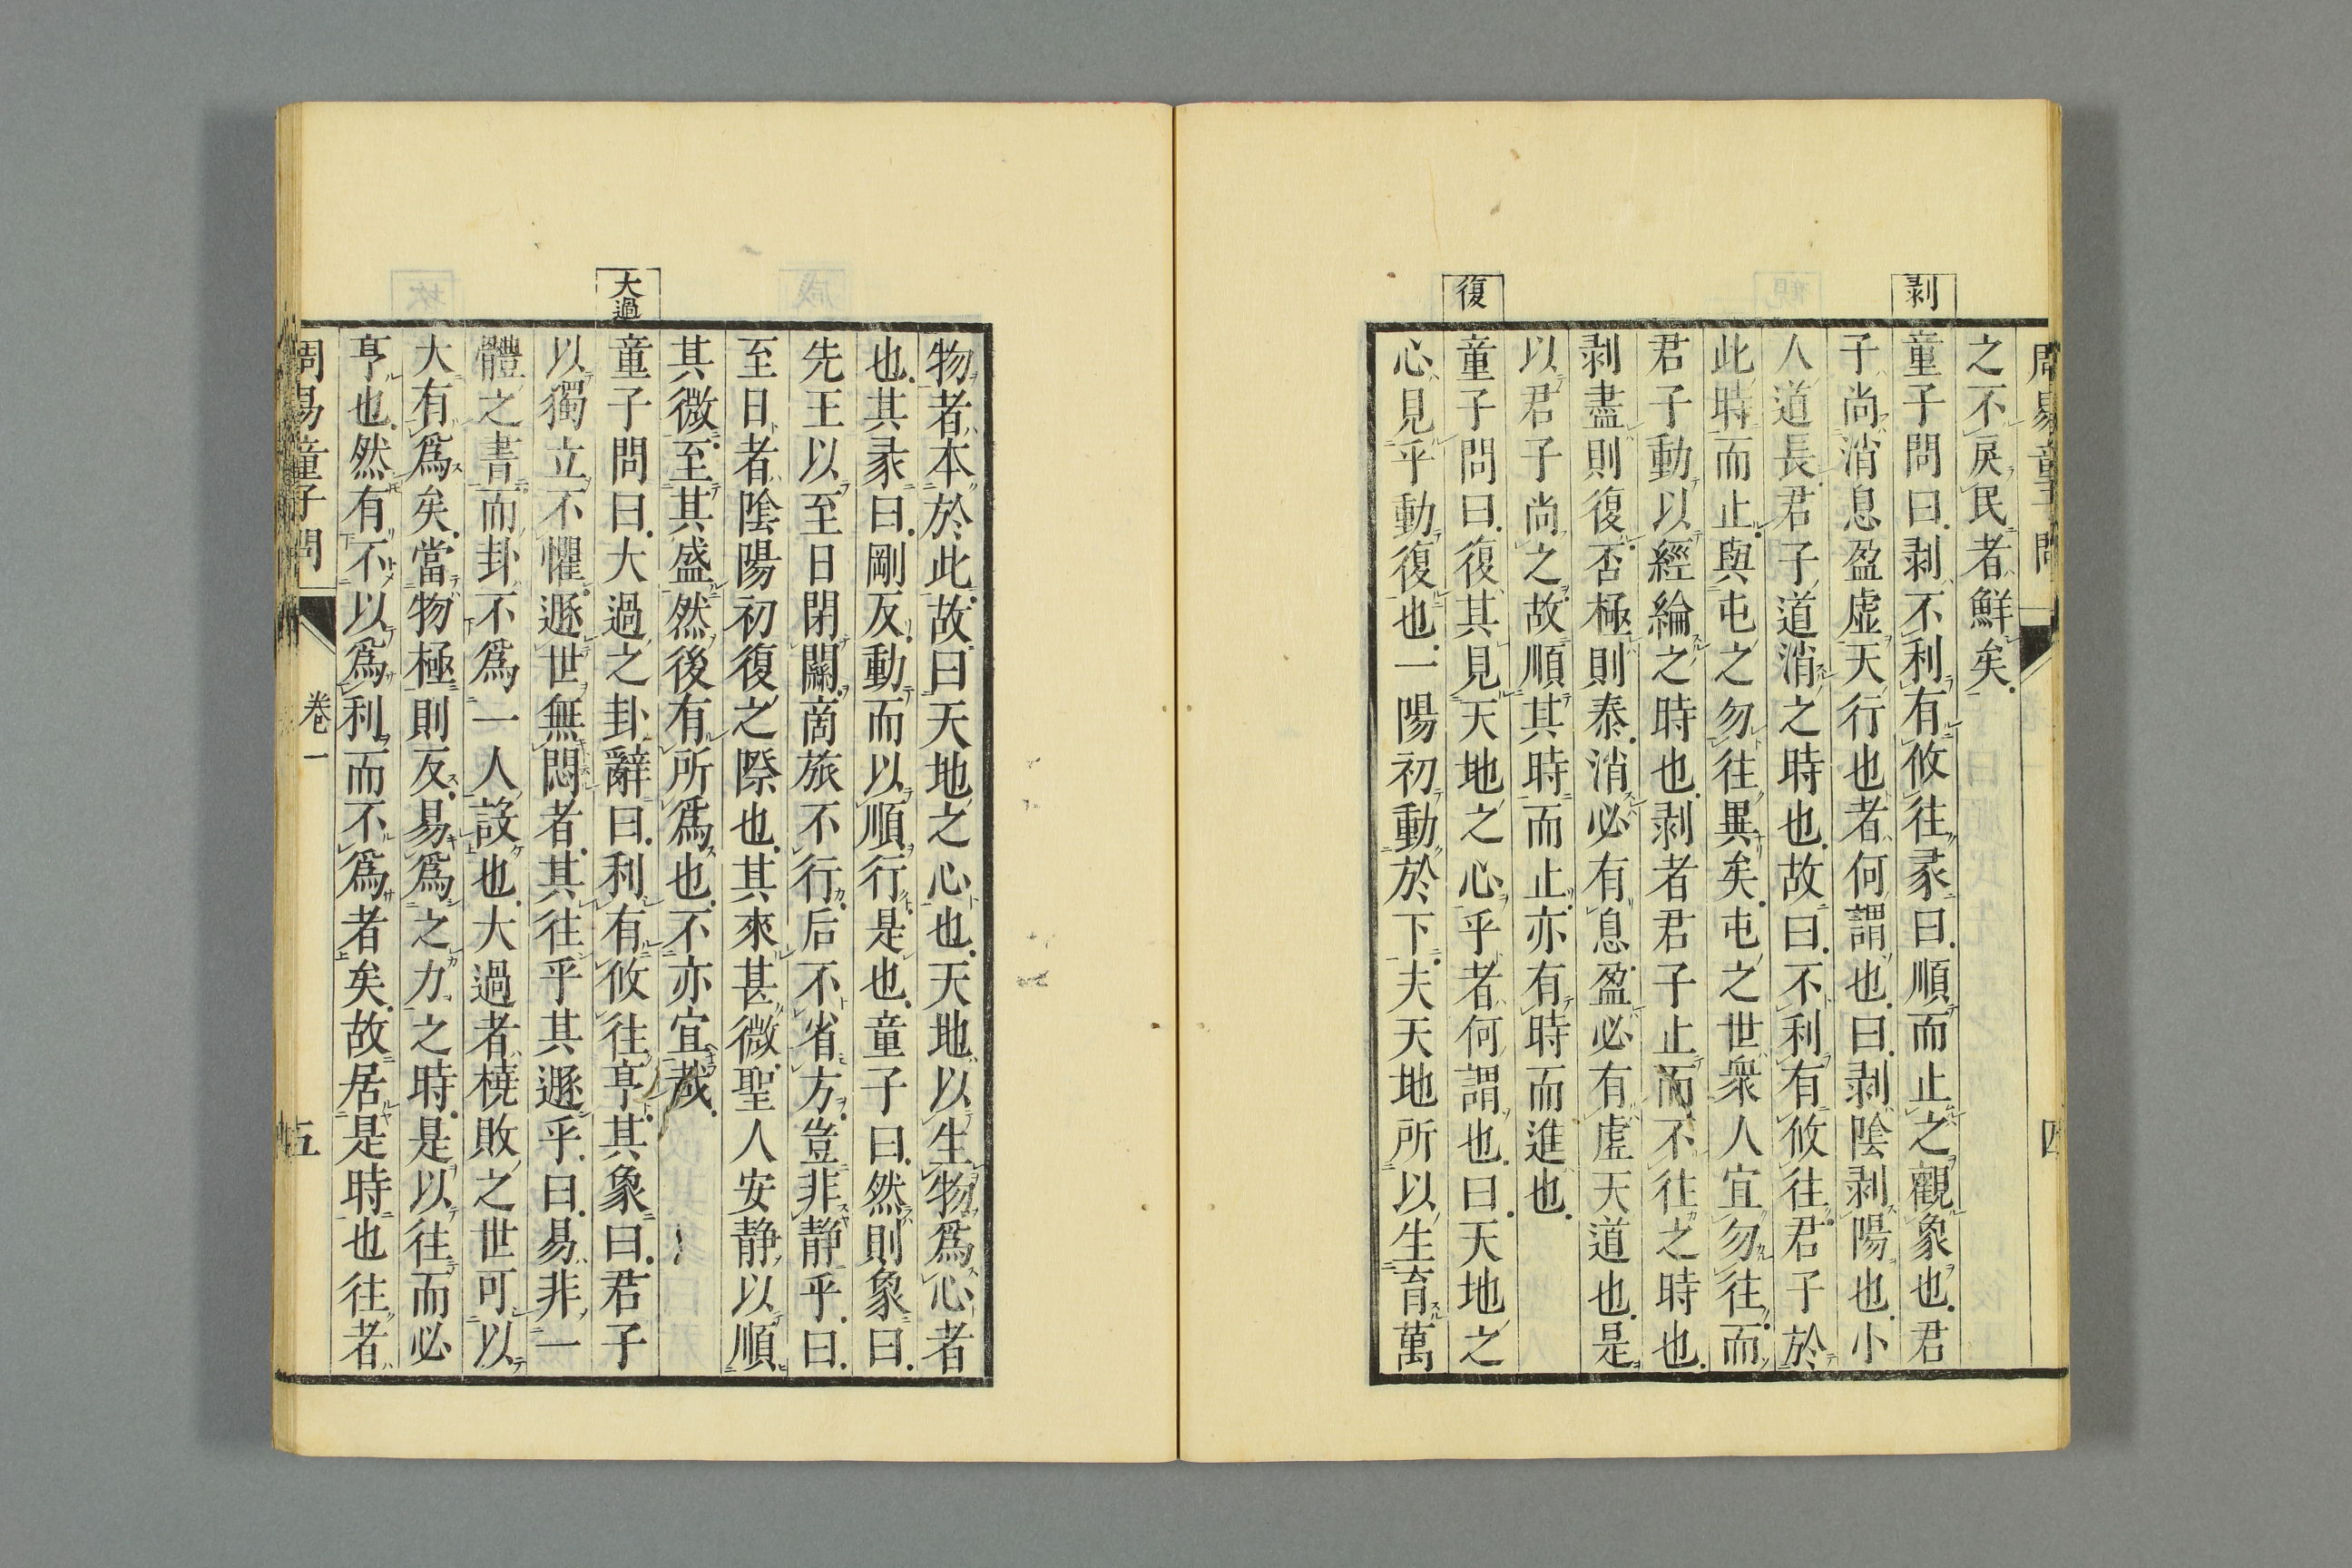 周易童子問
四
之不戾民者鮮矣.
剥
童子問曰.剥不利有攸往彖曰.順而止之觀象也.君
子尚消息盈虚天行也者何謂也.曰.剥陰剥陽也小
人道長.君子道消之時也.故曰.不利有攸往.君子於
此時而止.與屯之勿往異矣.屯之世衆人宜勿往.而
君子動以經綸之時也.剥者君子止而不往之時也.
剥盡則復.否極則泰.消必有息.盈必有虚天道也.是
以君子尚之.故順其時而止.亦有時而進也.
復
童子問曰.復其見天地之心乎者何謂也.曰.天地之
心見乎動復也.一陽初動於下.夫天地所以生育萬
物者本於此.故曰天地之心也.天地以生物爲心者
也.其彖曰.剛反.動而以順行.是也.童子曰.然則象曰.
先王以至日閉關.商旅不行.后不省方.豈非静乎.曰.
至日者陰陽初復之際也.其來甚微.聖人安静以順
其微.至其盛然後有所爲也.不亦宜哉.
大過
童子問曰.大過之卦辭曰.利有攸往亨.其象曰.君子
以獨立不懼.遯世無悶者.其往乎其遯乎.曰.易非一
體之書.而卦不爲一人設也.大過者橈敗之世可以
大有爲矣.當物極則反.易爲之力之時.是以往而必
亨也.然有不以爲利而不爲者矣.故居是時也往者
周易童子問
卷一
五